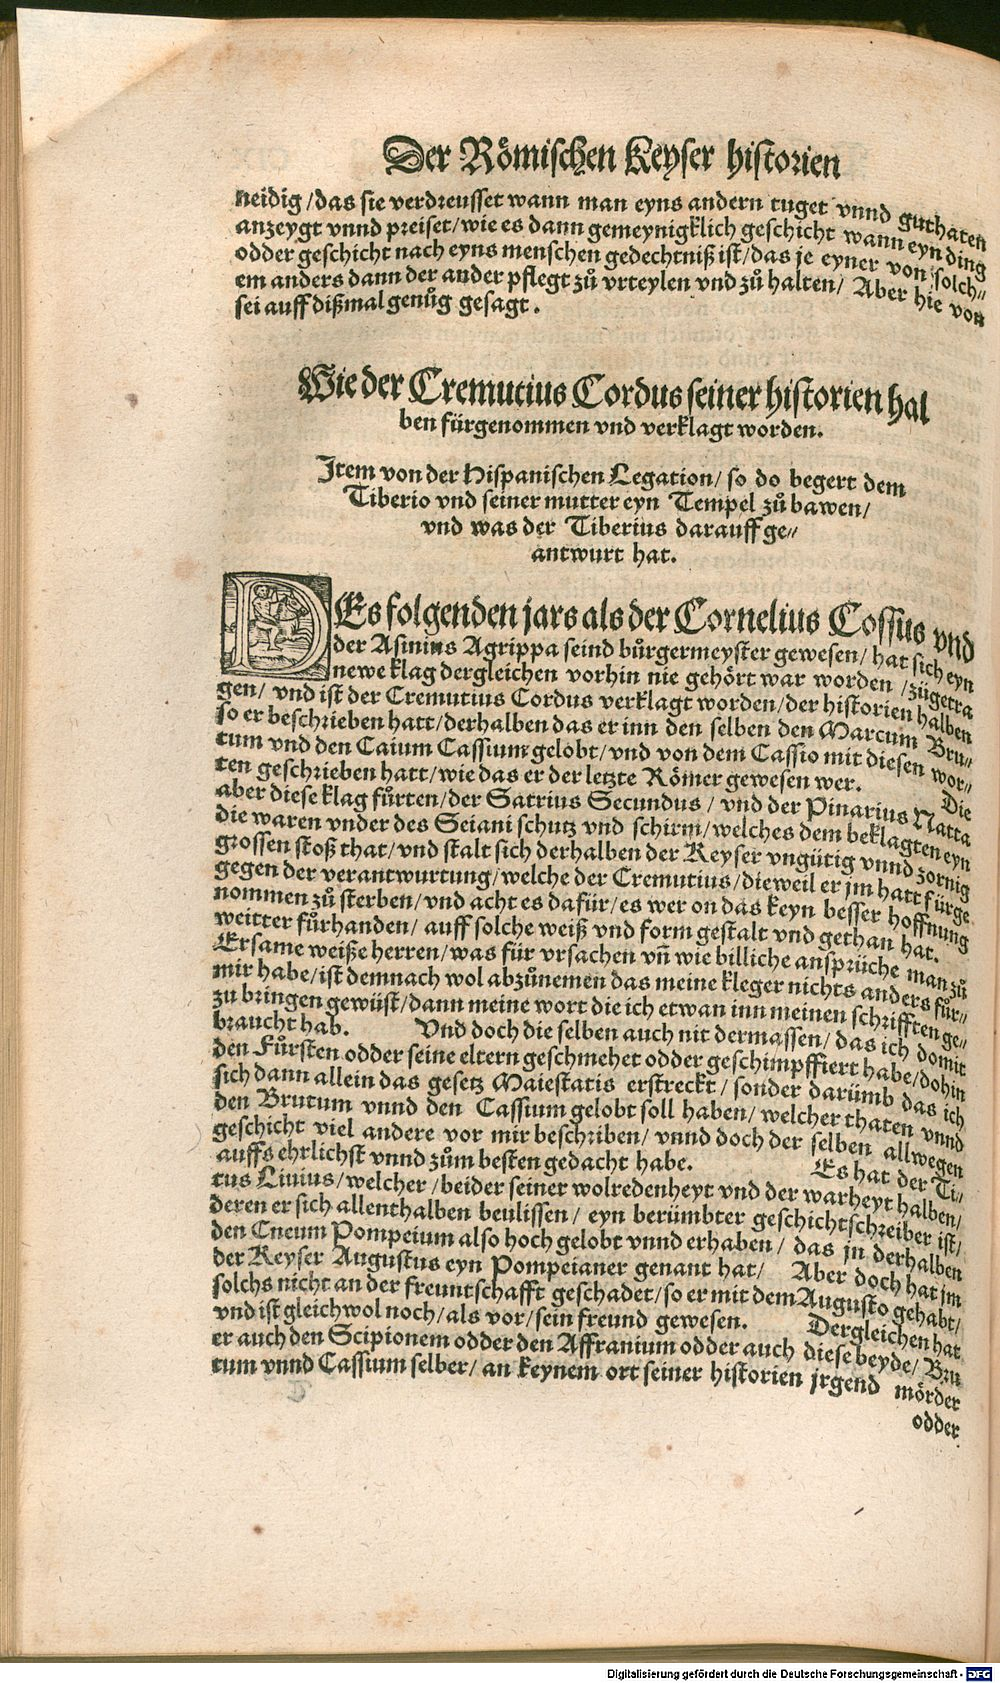 Der Römischen Keyser historien
neidig / das sie verdreusset wann man eyns andern tuget vnnd guthaten
anzeygt vnnd preiset / wie es dann gemeynigklich geschicht wann eyn ding
odder geschicht nach eyns menschen gedechtniß ist / das je eyner von solch⸗
em anders dann der ander pflegt zů vrteylen vnd zů halten / Aber hie von
sei auff dißmal genůg gesagt .
Wie der Cremutius Cordus seiner historien hal
ben fürgenommen vnd verklagt worden.
Item von der Hispanischen Legation / so do begert dem
Tiberio vnd seiner mutter eyn Tempel zů bawen /
vnd was der Tiberius darauff ge⸗
antwurt hat.
DEs folgenden jars als der Cornelius Cossus vnd
der Asinius Agrippa seind bůrgermeyster gewesen / hat sich eyn
newe klag dergleichen vorhin nie gehört war worden / zůgetra
gen / vnd ist der Cremutius Cordus verklagt worden / der historien halben
so er beschrieben hatt / derhalben das er inn den selben den Marcum Bru⸗
tum vnd den Caium Cassium gelobt / vnd von dem Cassio mit diesen wor⸗
ten geschrieben hatt / wie das er der letzte Römer gewesen wer. Die
aber diese klag fůrten / der Satrius Secundus / vnd der Pinarius Natta
die waren vnder des Seiani schutz vnd schirm / welches dem beklagten eyn
grossen stoß that / vnd stalt sich derhalben der Keyser vngütig vnnd zornig
gegen der verantwurtung / welche der Cremutius / dieweil er jm hatt fürge
nommen zů sterben / vnd acht es dafür / es wer on das keyn besser hoffnung
weitter fůrhanden / auff solche weiß vnd form gestalt vnd gethan hat.
Ersame weiße herren / was für vrsachen vñ wie billiche ansprüche man zů
mir habe / ist demnach wol abzůnemen das meine kleger nichts anders für⸗
zu bringen gewüst / dann meine wort die ich etwan inn meinen schrifften ge⸗
braucht hab. Vnd doch die selben auch nit dermassen / das ich domit
den Fůrsten odder seine eltern geschmehet odder geschimpffiert habe / dohin
sich dann allein das gesetz Maiestatis erstreckt / sonder darümb das ich
den Brutum vnnd den Cassium gelobt soll haben / welcher thaten vnnd
geschicht viel andere vor mir beschriben / vnnd doch der selben allwegen
auffs ehrlichst vnnd zům besten gedacht habe. Es hat der Ti⸗
tus Liuius / welcher / beider seiner wolredenheyt vnd der warheyt halben /
deren er sich allenthalben beulissen / eyn berümbter geschichtschreiber ist /
den Cneum Pompeium also hoch gelobt vnnd erhaben / das jn derhalben
der Keyser Augustus eyn Pompeianer genant hat / Aber doch hat jm
solchs nicht an der freuntschafft geschadet / so er mit dem Augusto gehabt /
vnd ist gleichwol noch / als vor / sein freund gewesen. Dergleichen hat
er auch den Scipionem odder den Affranium odder auch diese beyde / Bru
tum vnnd Cassium selber / an keynem ort seiner historien jrgend mörder
odder
Digitalisierung gefördert durch die Deutsche Forschungsgemeinschaft - DFG